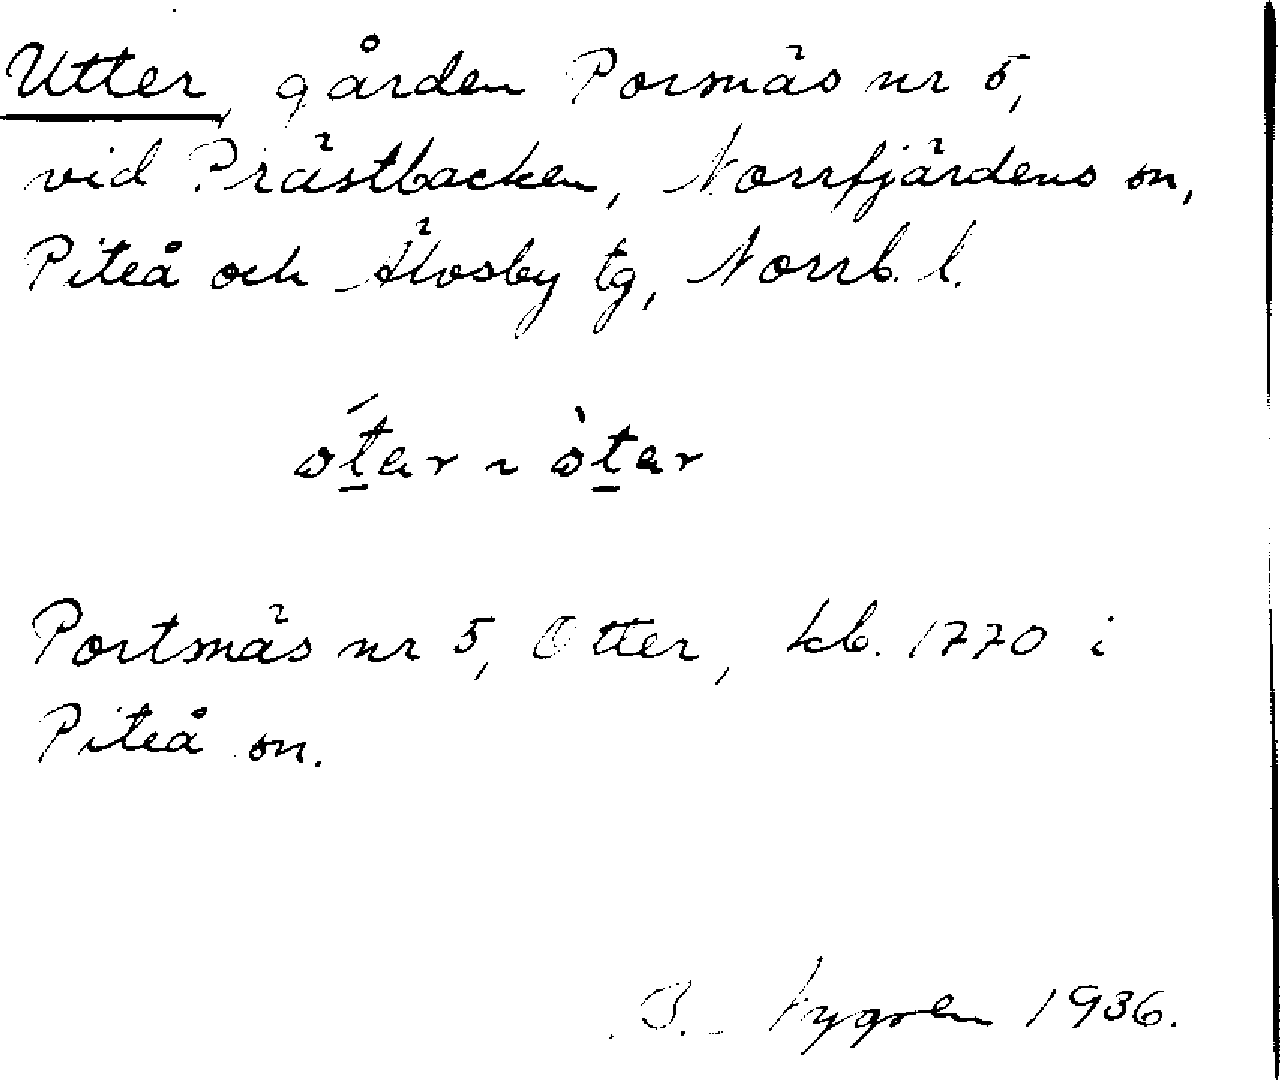 Utter, gården Porsnäs nr 5,
vid Prästbacken, Norrfjärdens sn,
Piteå och Älvsby tg, Norrb. l.
ótar ~ òtar
Portsnäs nr 5, Otter, kb. 1770 i
Piteå sn.
B. Nygren 1936.